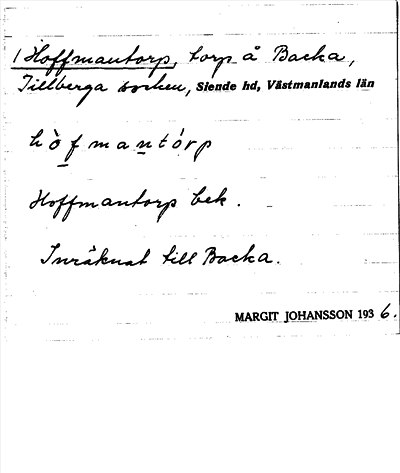 1 Hoffmantorp, torp å Backa,
Tillberga socken, Siende hd, Västmanlands län
hò̱f man̲tórp
Hoffmantorp bek.
Inräknat till Backa.
MARGIT JOHANSSON 1936.